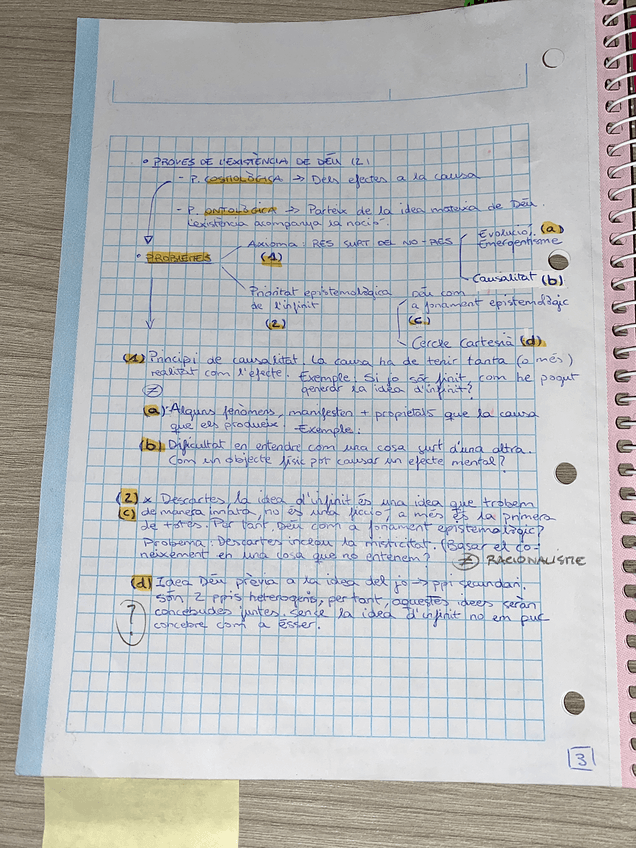 • PROVES DE L'EXISTÈNCIA DE DÉU (2)
- P. COSMOLÒGICA → Dels efectes a la causa
- P. ONTOLÒGICA → Parteix de la idea mateixa de Déu.
L'existència acompanya la noció.
• PROBLEMES
Axioma: RES SURT DEL NO-RES
(1)
Evolució. (a)
Emergentisme
Causalitat (b)
Prioritat epistemològica
de l'infinit
(2)
Déu com
a fonament epistemològic
(c)
Cercle Cartesià (d)
(1) Principi de causalitat la causa ha de tenir tanta (o més)
realitat com l'efecte. Exemple: Si jo sóc finit com he pogut
generar la idea d'infinit?
≠
(a) Alguns fenòmens, manifesten + propietats que la causa
que els produeix. Exemple:
(b) Dificultat en entendre com una cosa surt d'una altra.
Com un objecte físic pot causar un efecte mental?
(2) x Descartes la idea d'infinit és una idea que trobem
(c) de manera innata, no és una ficció, a més és la primera
de totes. Per tant, Déu com a fonament epistemològic?
Problema: Descartes inclou la misticitat. (Basar el co-
neixement en una cosa que no entenem? ≠ RACIONALISME
(d) Idea Déu prèvia a la idea del jo → ppi secundari.
Són 2 ppis heterogenis, per tant, aquestes idees seran
concebudes juntes, sense la idea d'infinit no em puc
concebre com a ésser.
?
3